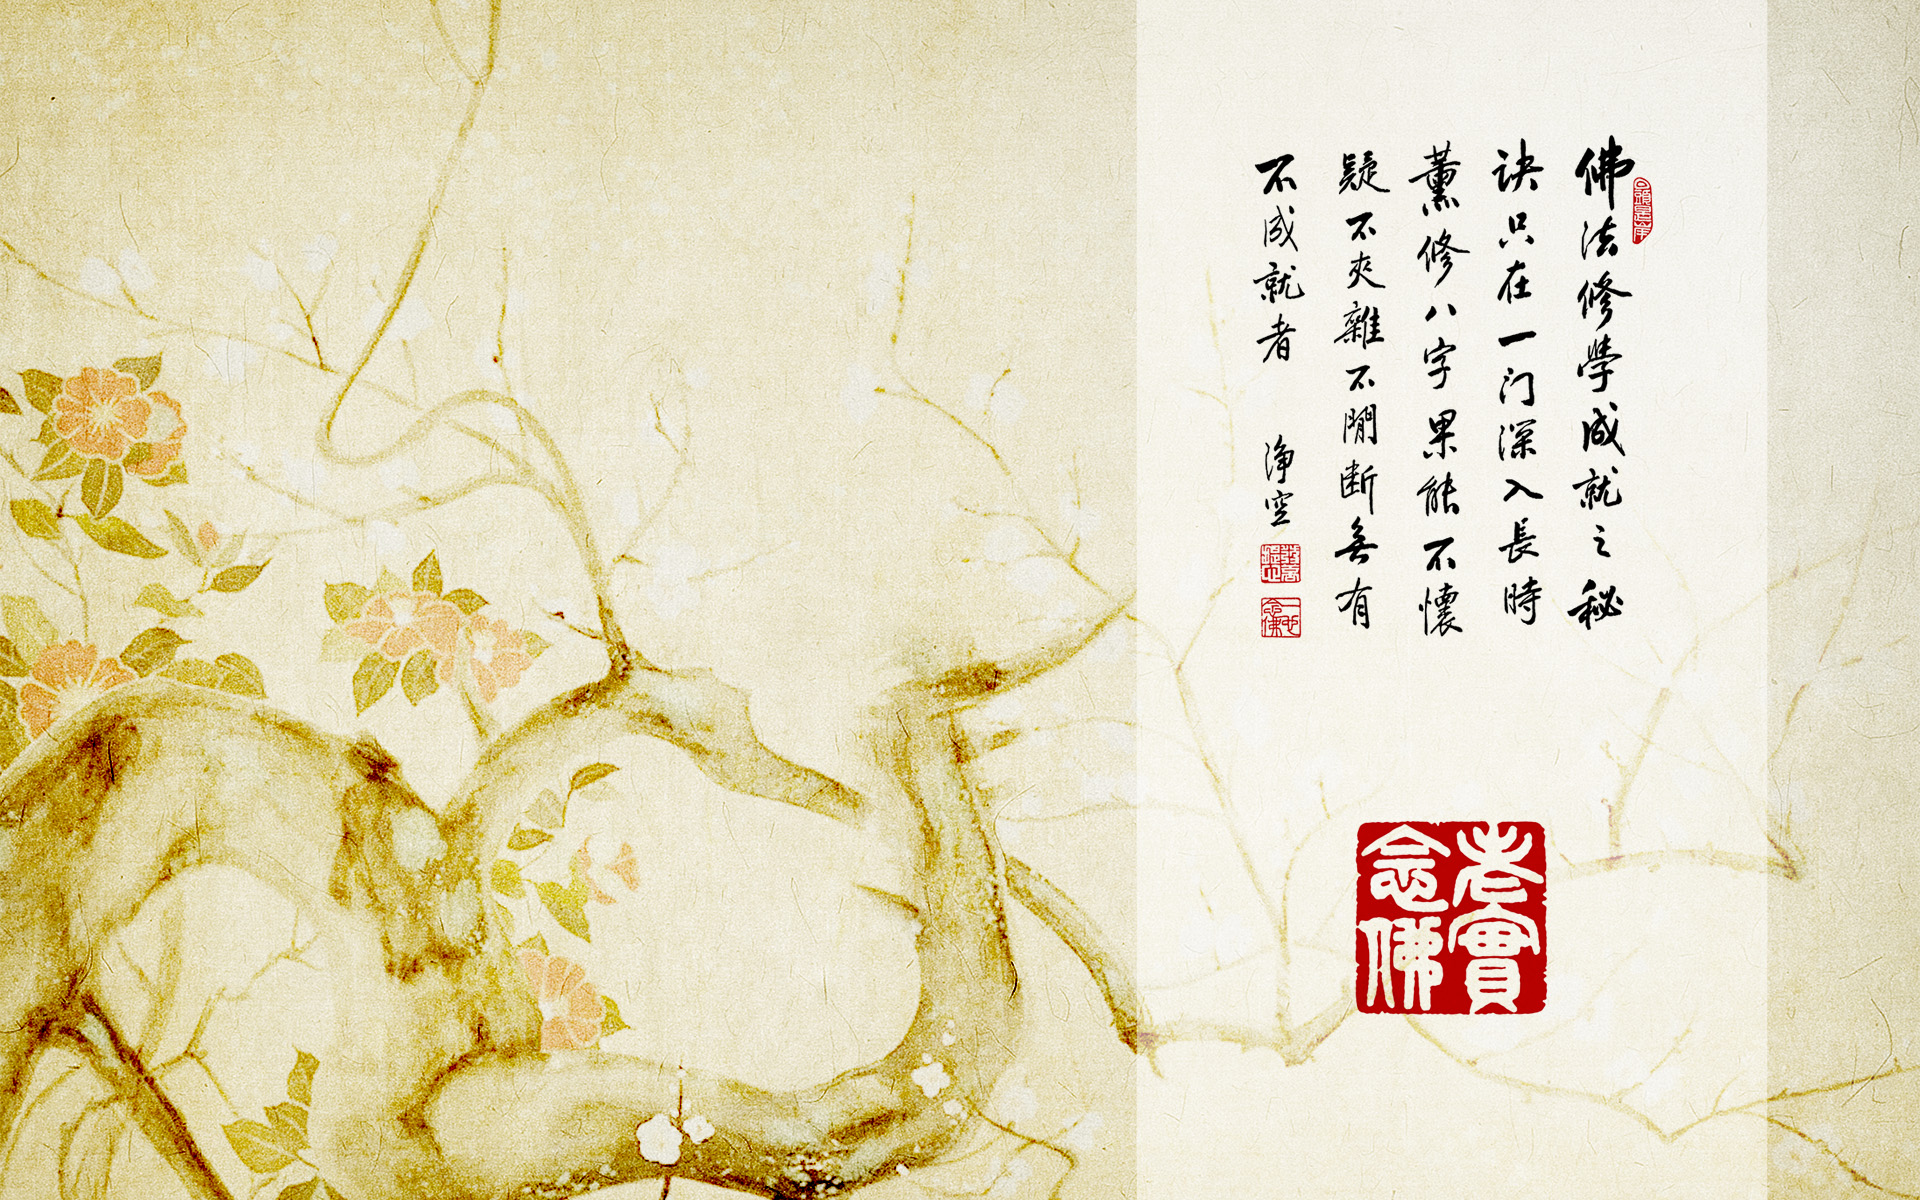 佛法修學成就之秘
訣只在一门深入長時
薰修八字果能不懷
疑不夾雜不閒断無有
不成就者
淨空
老實
念佛